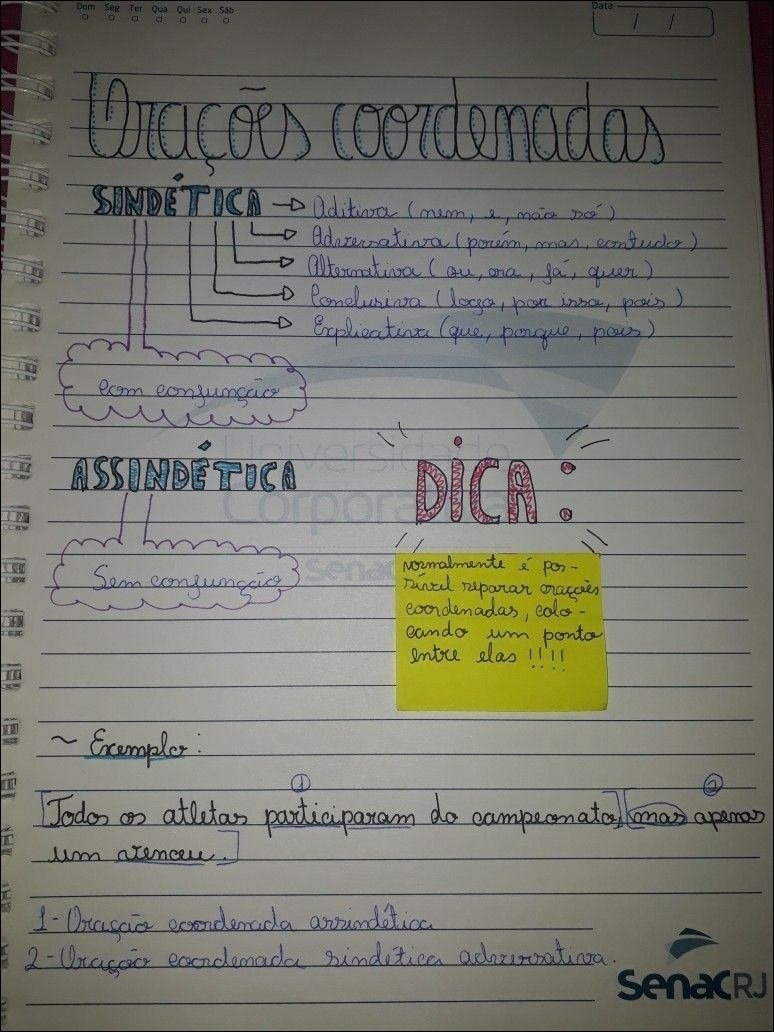 Dom Seg Ter Qua Qui Sex Sáb
Data
/ /
Orações coordenadas
SINDÉTICA → Aditiva (nem, e, não só)
Adversativa (porém, mas, contudo)
Alternativa (ou, ora, já, quer)
Conclusiva (logo, por isso, pois)
Explicativa (que, porque, pois)
com conjunção
Universidade
Corporativa
Senac
ASSINDÉTICA
Sem conjunção
DICA:
normalmente é pos-
sível separar orações
coordenadas, colo-
cando um ponto
entre elas !!!!
~ Exemplo:
1 2
[Todos os atletas participaram do campeonato,] [mas apenas
um venceu.]
1- Oração coordenada assindética
2- Oração coordenada sindética adversativa.
Senac RJ